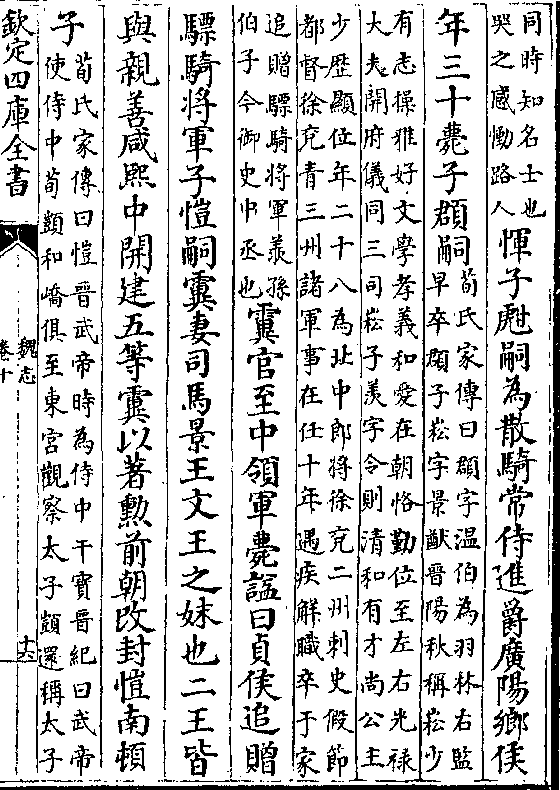 同時知名士也
哭之感慟路人
惲子甝嗣為散騎常侍進爵廣陽鄉侯
年三十薨子頵嗣
荀氏家傳曰頵字温伯為羽林右監
早卒頵子崧字景猷晉陽秋稱崧少
有志操雅好文學孝義和愛在朝恪勤位至左右光禄
大夫開府儀同三司崧子羨字令則清和有才尚公主
少歴顯位年二十八為北中郎將徐兖二州刺史假節
都督徐兖青三州諸軍事在任十年遇疾解職卒于家
追贈驃騎將軍羨孫
伯子今御史中丞也
霬官至中領軍薨諡曰貞侯追贈
驃騎將軍子愷嗣霬妻司馬景王文王之妹也二王皆
與親善咸熙中開建五等霬以著勲前朝改封愷南頓
子
荀氏家傳曰愷晉武帝時為侍中干寶晉紀曰武帝
使侍中荀顗和嶠俱至東宮觀察太子顗還稱太子
欽定四庫全書
魏志
卷十
十六